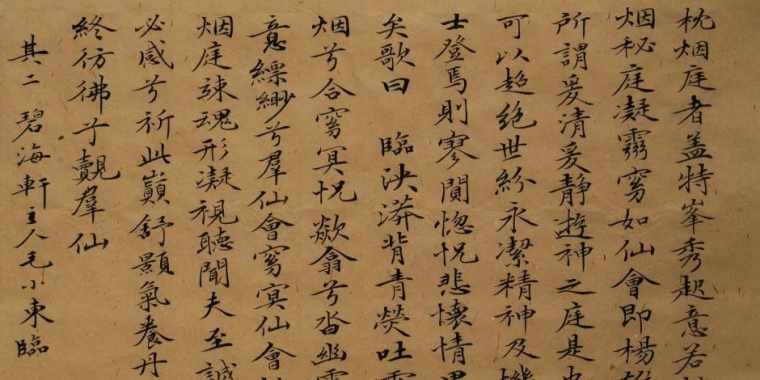 枕烟庭者盖特峯秀起意若
烟秘庭凝窅如仙會即楊
所謂爰清爰静遊神之庭是
可以超絕世紛永潔精神及機
士登焉則寥闃惚怳悲懷情
矣歌曰 臨泱漭背青熒吐雲
烟兮合窅冥怳欻翕兮沓幽
意縹緲兮羣仙會窅冥仙會
烟庭竦魂形凝視聽聞夫至誠
必感兮祈此巔舒顥氣養丹
終彷彿兮覿羣仙
其二 碧海軒主人毛小東臨